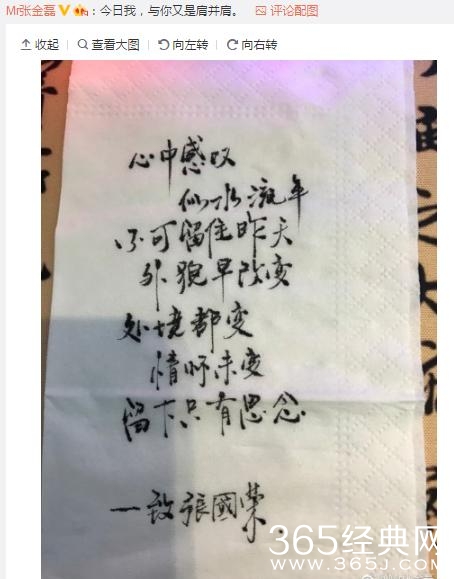 Mr张金磊：今日我，与你又是肩并肩。 评论配图
收起 查看大图 向左转 向右转
心中感叹
似水流年
不可留住昨天
外貌早改变
处境都变
情怀未变
留下只有思念
一致張國榮.
365经典网
www.365j.com